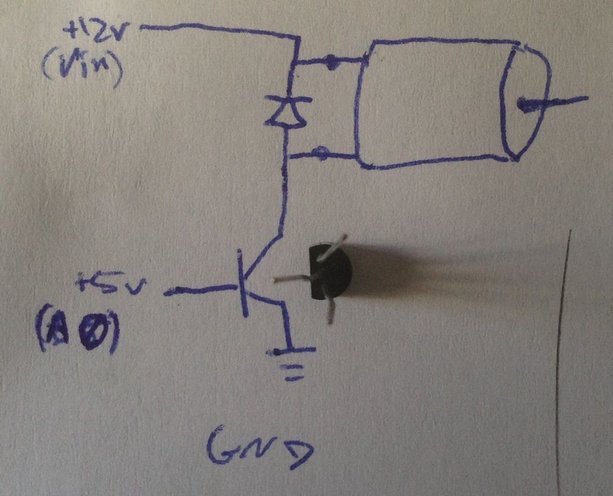 +12v
(Vin)
+5v
(A0)
GND